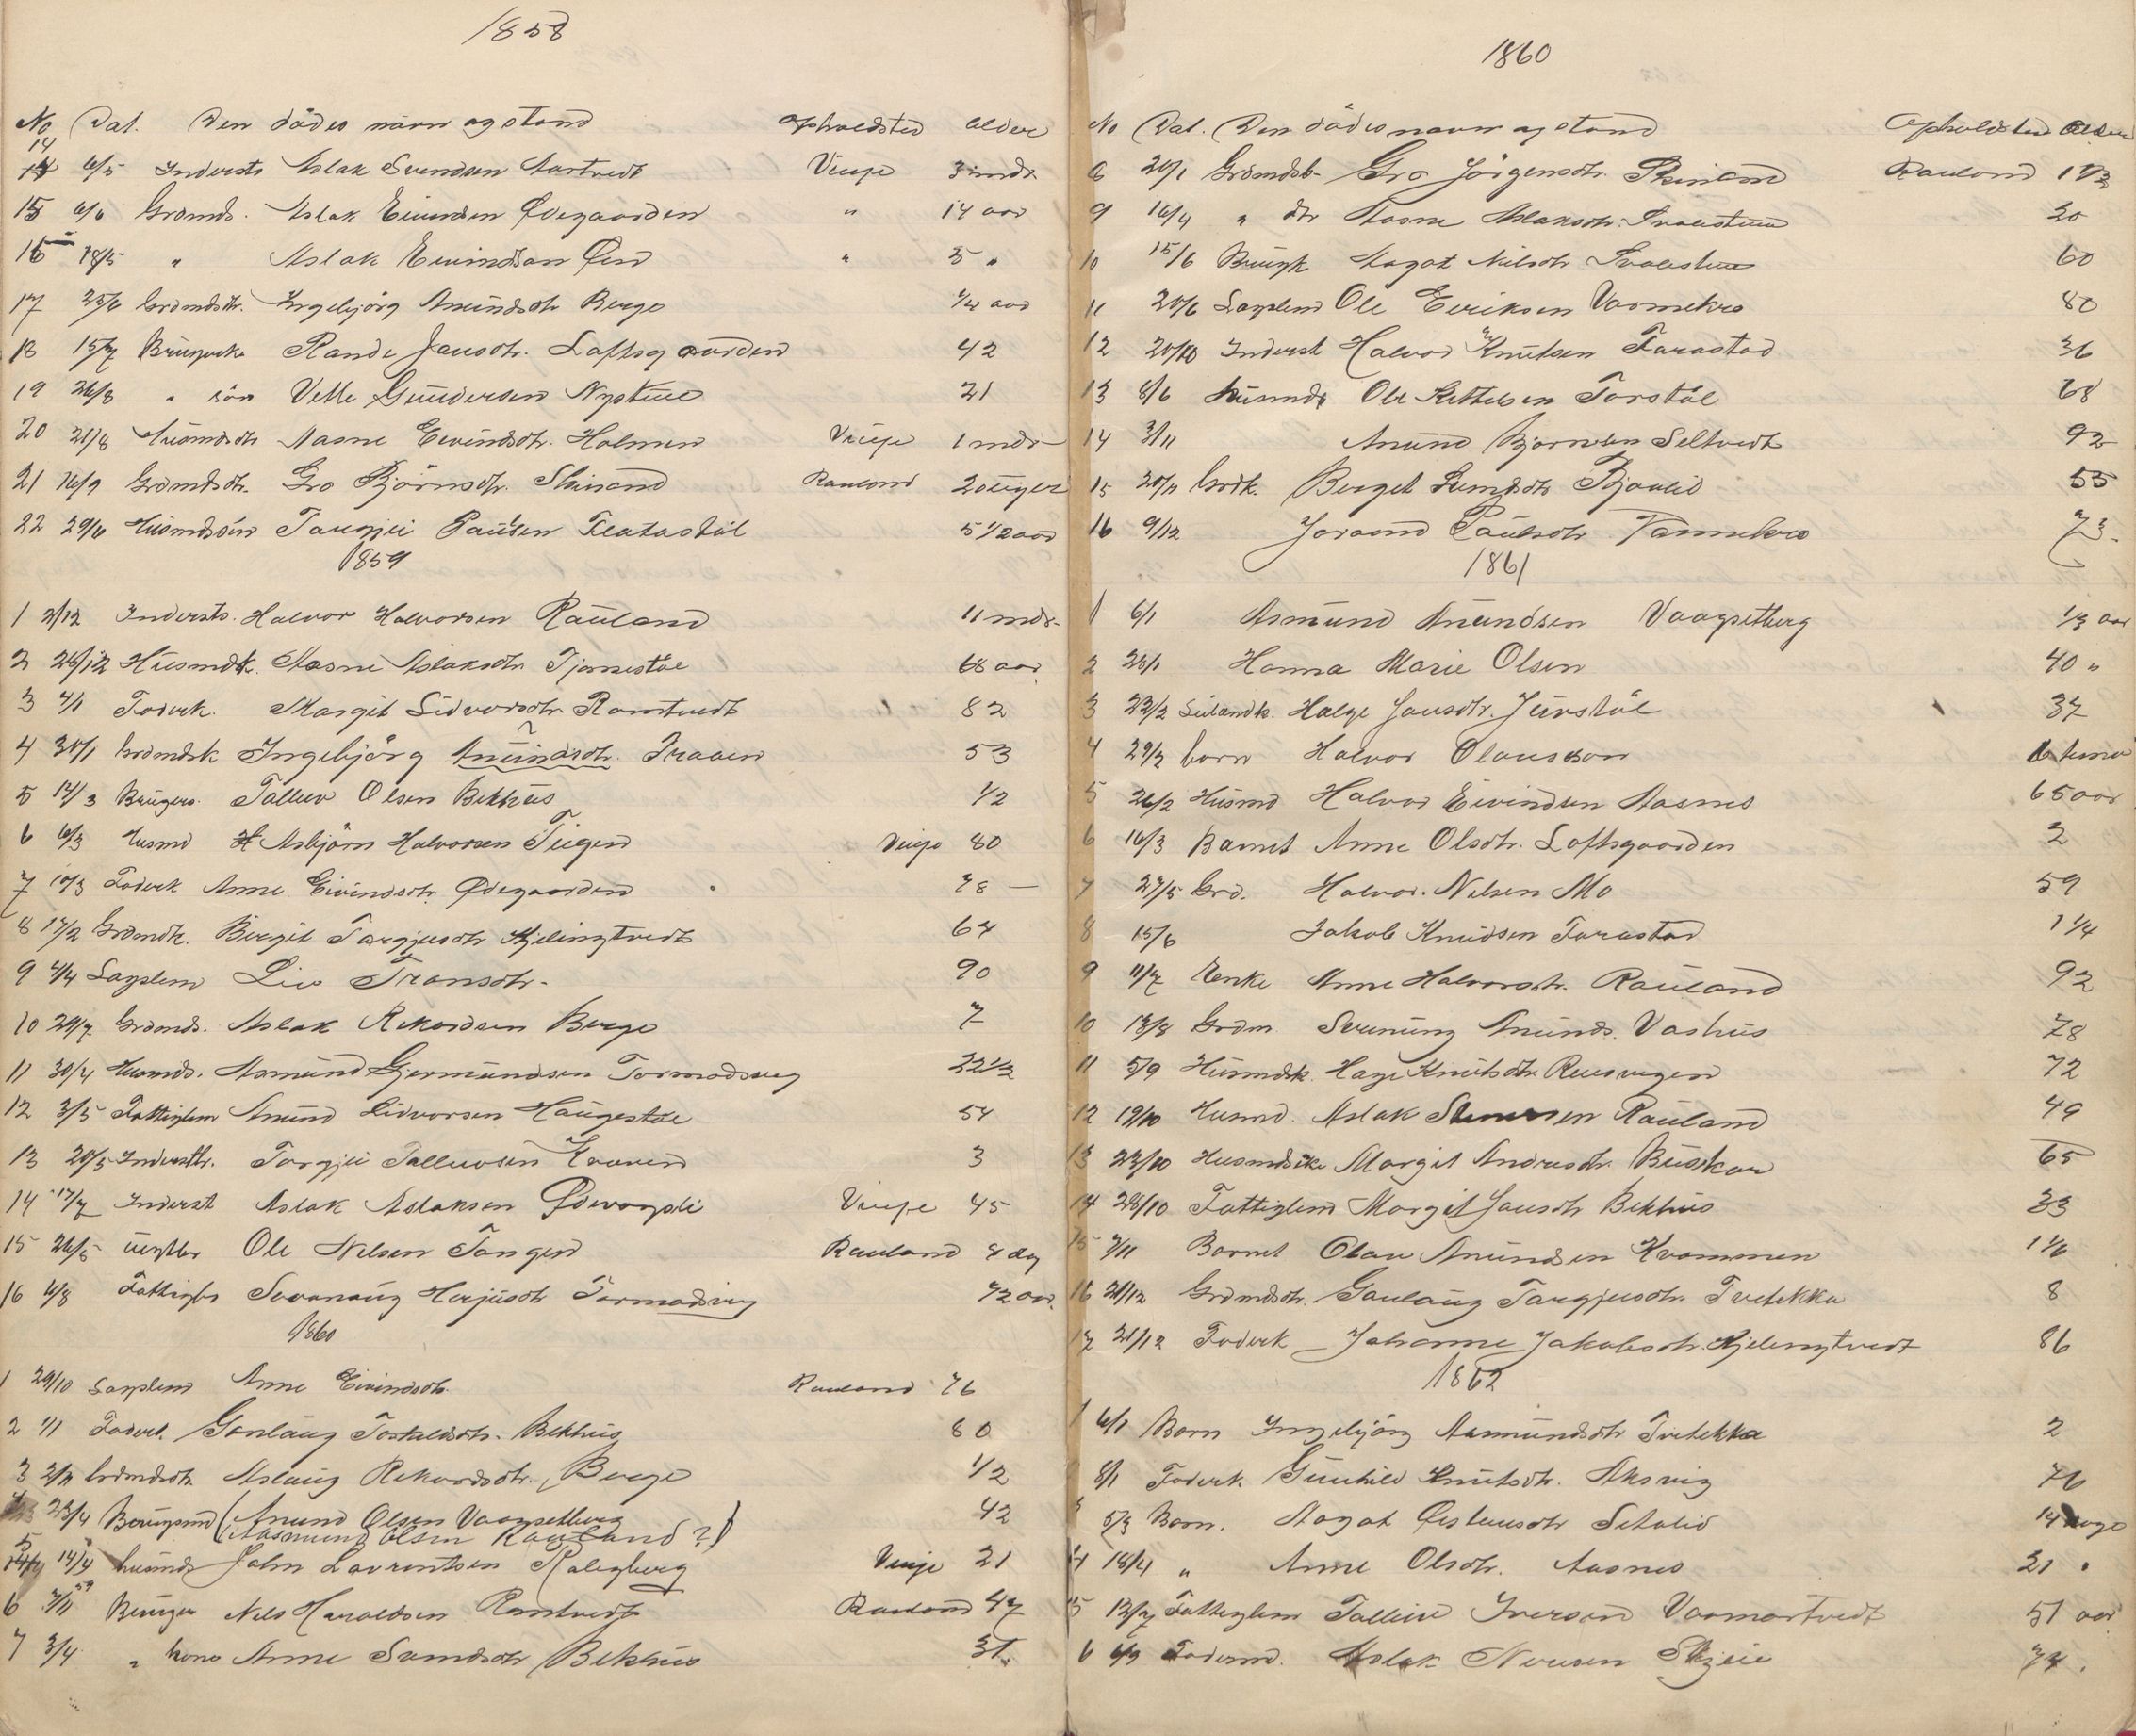 1858
No Dat. Den dödes navn og stand Opholdsted alder
14
14 6/5 Indersts Aslak Svendsen Aartvedt Vinje 3 mdr
15 6/6 Grdmds. Aslak Eivindsen Ødegaarden " 14 aar
16 18/5 " Aslak Eivindsen Øen " 5 "
17 25/6 Grdmdsdtr. Ingebjörg Anundsdtr Berge 1/2 aar
18 15/7 Brugerke Rande Jansdtr. Loftsgaarden 42
19 26/8 " sön Vetle Gundersen Nystue 21
20 21/8 Husmdsdtr Aasne Eivindsdtr. Holmen Vinje 1 mdr
21 16/9 Grdmdsdtr. Gro Björnsdtr. Skinand Rauland 2 uger
22 29/6 Husmdssön Targjei Paulsen Flatastöl 5 1/2 aar
1859
1 2/12 Indersts. Halvor Halvorsen Rauland 11 mdr.
2 26/12 Husmdk. Aasne Aslaksdtr. Tjønnestöl 68 aar
3 4/1 Föderk. Margit Lidvorsdtr. Ramtvedt 82
4 30/1 Grdmdsk Ingebjörg Anundsdtr. Traaen 53
5 14/3 Brugers. Tallev Olsen Bekhus 1/2
6 6/3 Husmd H Asbjörn Halvorsen Teigen Vinje 80
7 10/3 Föderk Anne Eivindsdtr. Ødegaarden 78 —
8 17/2 Grdmdk. Birgit Targjeisdtr Kjelingtvedt 64
9 4/4 Lægslem Liv Transdtr. 90
10 29/7 Grdmds. Aslak Rikardsen Berge 7
11 30/4 Husmds. Asmund Germundsen Tormodsveg 22 1/2
12 3/5 Fattiglem Anund Lidvorsen Haugestöl 54
13 20/5 Inderstbr. Torgjei Tallevsen Kraaen 3
14 17/7 Inderst Aslak Aslaksen Ødevaspli Vinje 45
15 26/5 Ole Nilsen Tangen Rauland 8 dag
16 6/8 Svanaug Herjusdtr Tormodsveg 1/2 aar.
1860
1 29/10 Lægslem Anne Eivindsdtr. Rauland 76
2 1/1 Föderk. Gonlaug Torkeldsdtr. Bekhus 80
3 2/11 Grdmdsdtr. Aslaug Rikardsdtr. Berge 1/2
4 23/4 Brugsmd (Anund Olsen Vaagsetberg 42
(Aasmund Olsen Rauland ?)
5 14/4 husmds John Lavrentsen Kalegberg Vinje 21
6 7/11 59 Bruger Nils Haraldsen Ramtvedt Rauland 47
7 3/4 " kone Anne Svendsdtr Bekhus 31.
1860
No Dat. Den dödes navn og stand Opholdsted Alder
8 20/1 Grdmdsb- Gro Jörgensdtr. Skinand Rauland 1 1/2
9 16/4 " dtr Aasne Aslaksdtr. Svalestuen 20
10 15/6 Brugk Aagot Nilsdtr Svalestuen 60
11 20/6 Lægslem Ole Eeriksen Vaamekro 80
12 20/10 Inderst Halvor Knutsen Farastad 36
13 8/6 husmds Ole Kittelsen Torstöl 68
14 3/11 Anund Bjørnsen Seltvedt 92
15 20/11 Grdk. Berget Sumdsdtr Bjaalid 55
16 9/12 Joraand Paulsdtr Vaamekro 73.
1861
1 6/1 Asmund Anundsen Vaagsetberg 1/3 aar
2 28/1 Hanna Marie Olsen 40 "
3 22/2 Seilandk. Helge Jansdtr. Jurstöl 37
4 29/3 barn Halvor Olavsson 6 timer
5 26/2 Husmd Halvor Eivindsen Aasnes 65 aar
6 16/3 Barnet Anne Olsdtr. Loftsgaarden 2
7 27/5 Grd. Halvor Nilsen Mo 59
8 15/6 Jakob Knudsen Farastad 1 1/4
9 11/7 Enke Anne Halvorsdtr. Rauland 92
10 13/8 Grdm Sveinung Anunds. Vashus 78
11 5/9 Husmdsk. Hage Knutsdtr. Reusvegen 72
12 19/10 Husmd. Aslak Steinarsen Rauland 49
13 23/10 Husmdske Margit Andresdtr. Buskar 65
14 28/10 Fattiglem Margit Jansdtr Bekhus 33
15 7/11 Barnet Olav Anundsen Krommen 1 1/6
16 21/12 Grdmdsdtr. Gonlaug Targjeisdtr. Tvetekka 8
17 21/12 Föderk Johanne Jakobsdtr. Kjelingtvedt 86
1862
1 6/1 Barn Ingebjörg Aasmundsdtr Tvetekka 2
8/1 Föderk. Gunhild Knutsdtr. Aksvig 76
3 5/3 Barn. Aagot Østensdtr Setalid 14 uge
4 18/4 " Anne Olsdtr. Aasnes 21 "
5 12/7 Fattiglem Tallev Iversen Vaamartvedt 51 aar
6 6/9 Födermd. Aslak Nerisen Skjeie 74.